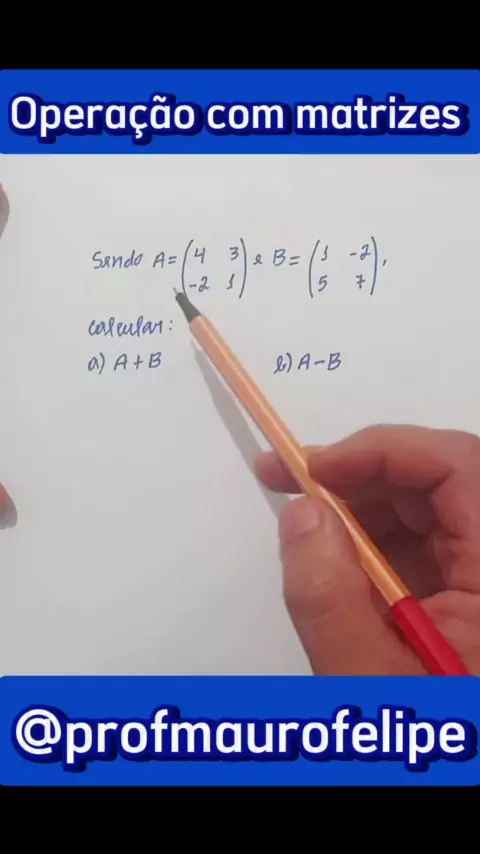 Operação com matrizes
Sendo A = (4 3
-2 1) e B = (1 -2
5 7),
calcular:
a) A + B
b) A - B
@profmaurofelipe